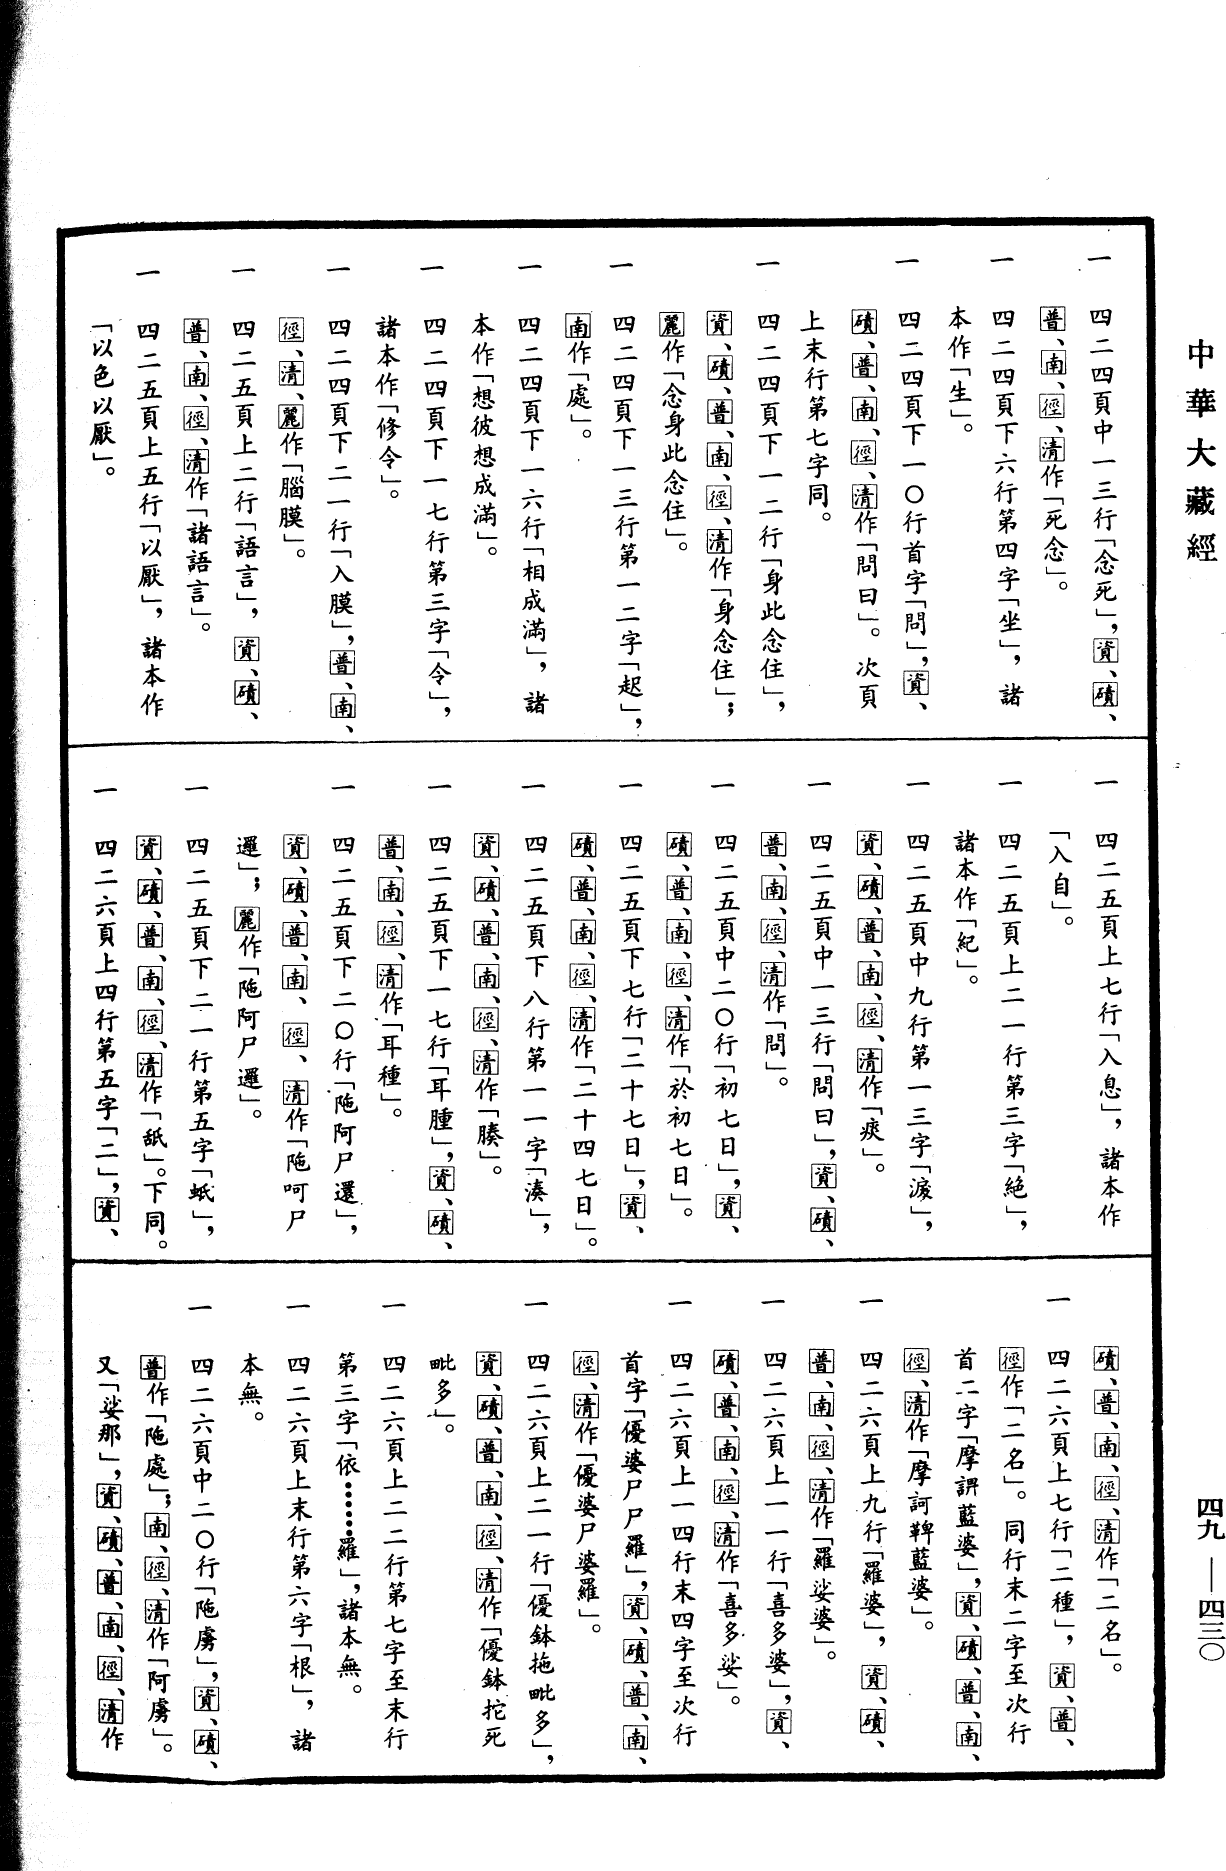 中華大藏經
一　四二四頁中一三行「念死」，資、磧、
普、南、徑、清作「死念」。
一　四二四頁下六行第四字「坐」，諸
本作「生」。
一　四二四頁下一〇行首字「問」，資、
磧、普、南、徑、清作「問曰」。次頁
上末行第七字同。
一　四二四頁下一二行「身此念住」，
資、磧、普、南、徑、清作「身念住」；
麗作「念身此念住」。
一　四二四頁下一三行第一二字「起」，
南作「處」。
一　四二四頁下一六行「相成滿」，諸
本作「想彼想成滿」。
一　四二四頁下一七行第三字「令」，
諸本作「修令」。
一　四二四頁下二一行「入膜」，普、南、
徑、清、麗作「腦膜」。
一　四二五頁上二行「語言」，資、磧、
普、南、徑、清作「諸語言」。
一　四二五頁上五行「以厭」，諸本作
「以色以厭」。
一　四二五頁上七行「入息」，諸本作
「入自」。
一　四二五頁上二一行第三字「絕」，
諸本作「紀」。
一　四二五頁中九行第一三字「淚」，
資、磧、普、南、徑、清作「痰」。
一　四二五頁中一三行「問曰」，資、磧、
普、南、徑、清作「問」。
一　四二五頁中二〇行「初七日」，資、
磧、普、南、徑、清作「於初七日」。
一　四二五頁下七行「二十七日」，資、
磧、普、南、徑、清作「二十四七日」。
一　四二五頁下八行第一一字「湊」，
資、磧、普、南、徑、清作「腠」。
一　四二五頁下一七行「耳腫」，資、磧、
普、南、徑、清作「耳種」。
一　四二五頁下二〇行「陁阿尸還」，
資、磧、普、南、徑、清作「陁呵尸
邏」；麗作「陁阿尸邏」。
一　四二五頁下二一行第五字「蚔」，
資、磧、普、南、徑、清作「舐」。下同。
一　四二六頁上四行第五字「二」，資、
磧、普、南、徑、清作「二名」。
一　四二六頁上七行「二種」，資、普、
徑作「二名」。同行末二字至次行
首二字「摩䛆藍婆」，資、磧、普、南、
徑、清作「摩訶鞞藍婆」。
一　四二六頁上九行「羅婆」，資、磧、
普、南、徑、清作「羅娑婆」。
一　四二六頁上一一行「喜多婆」，資、
磧、普、南、徑、清作「喜多娑」。
一　四二六頁上一四行末四字至次行
首字「優婆尸尸羅」，資、磧、普、南、
徑、清作「優婆尸婆羅」。
一　四二六頁上二一行「優鉢拖毗多」，
資、磧、普、南、徑、清作「優鉢拕死
毗多」。
一　四二六頁上二二行第七字至末行
第三字「依……羅」，諸本無。
一　四二六頁上末行第六字「根」，諸
本無。
一　四二六頁中二〇行「陁虜」，資、磧、
普作「陁處」；南、徑、清作「阿虜」。
又「娑那」，資、磧、普、南、徑、清作
四九—四三〇